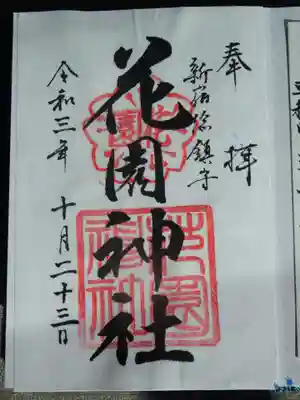 奉拝
新宿総鎮守
花園神社
花園神社
令和三年 十月二十三日